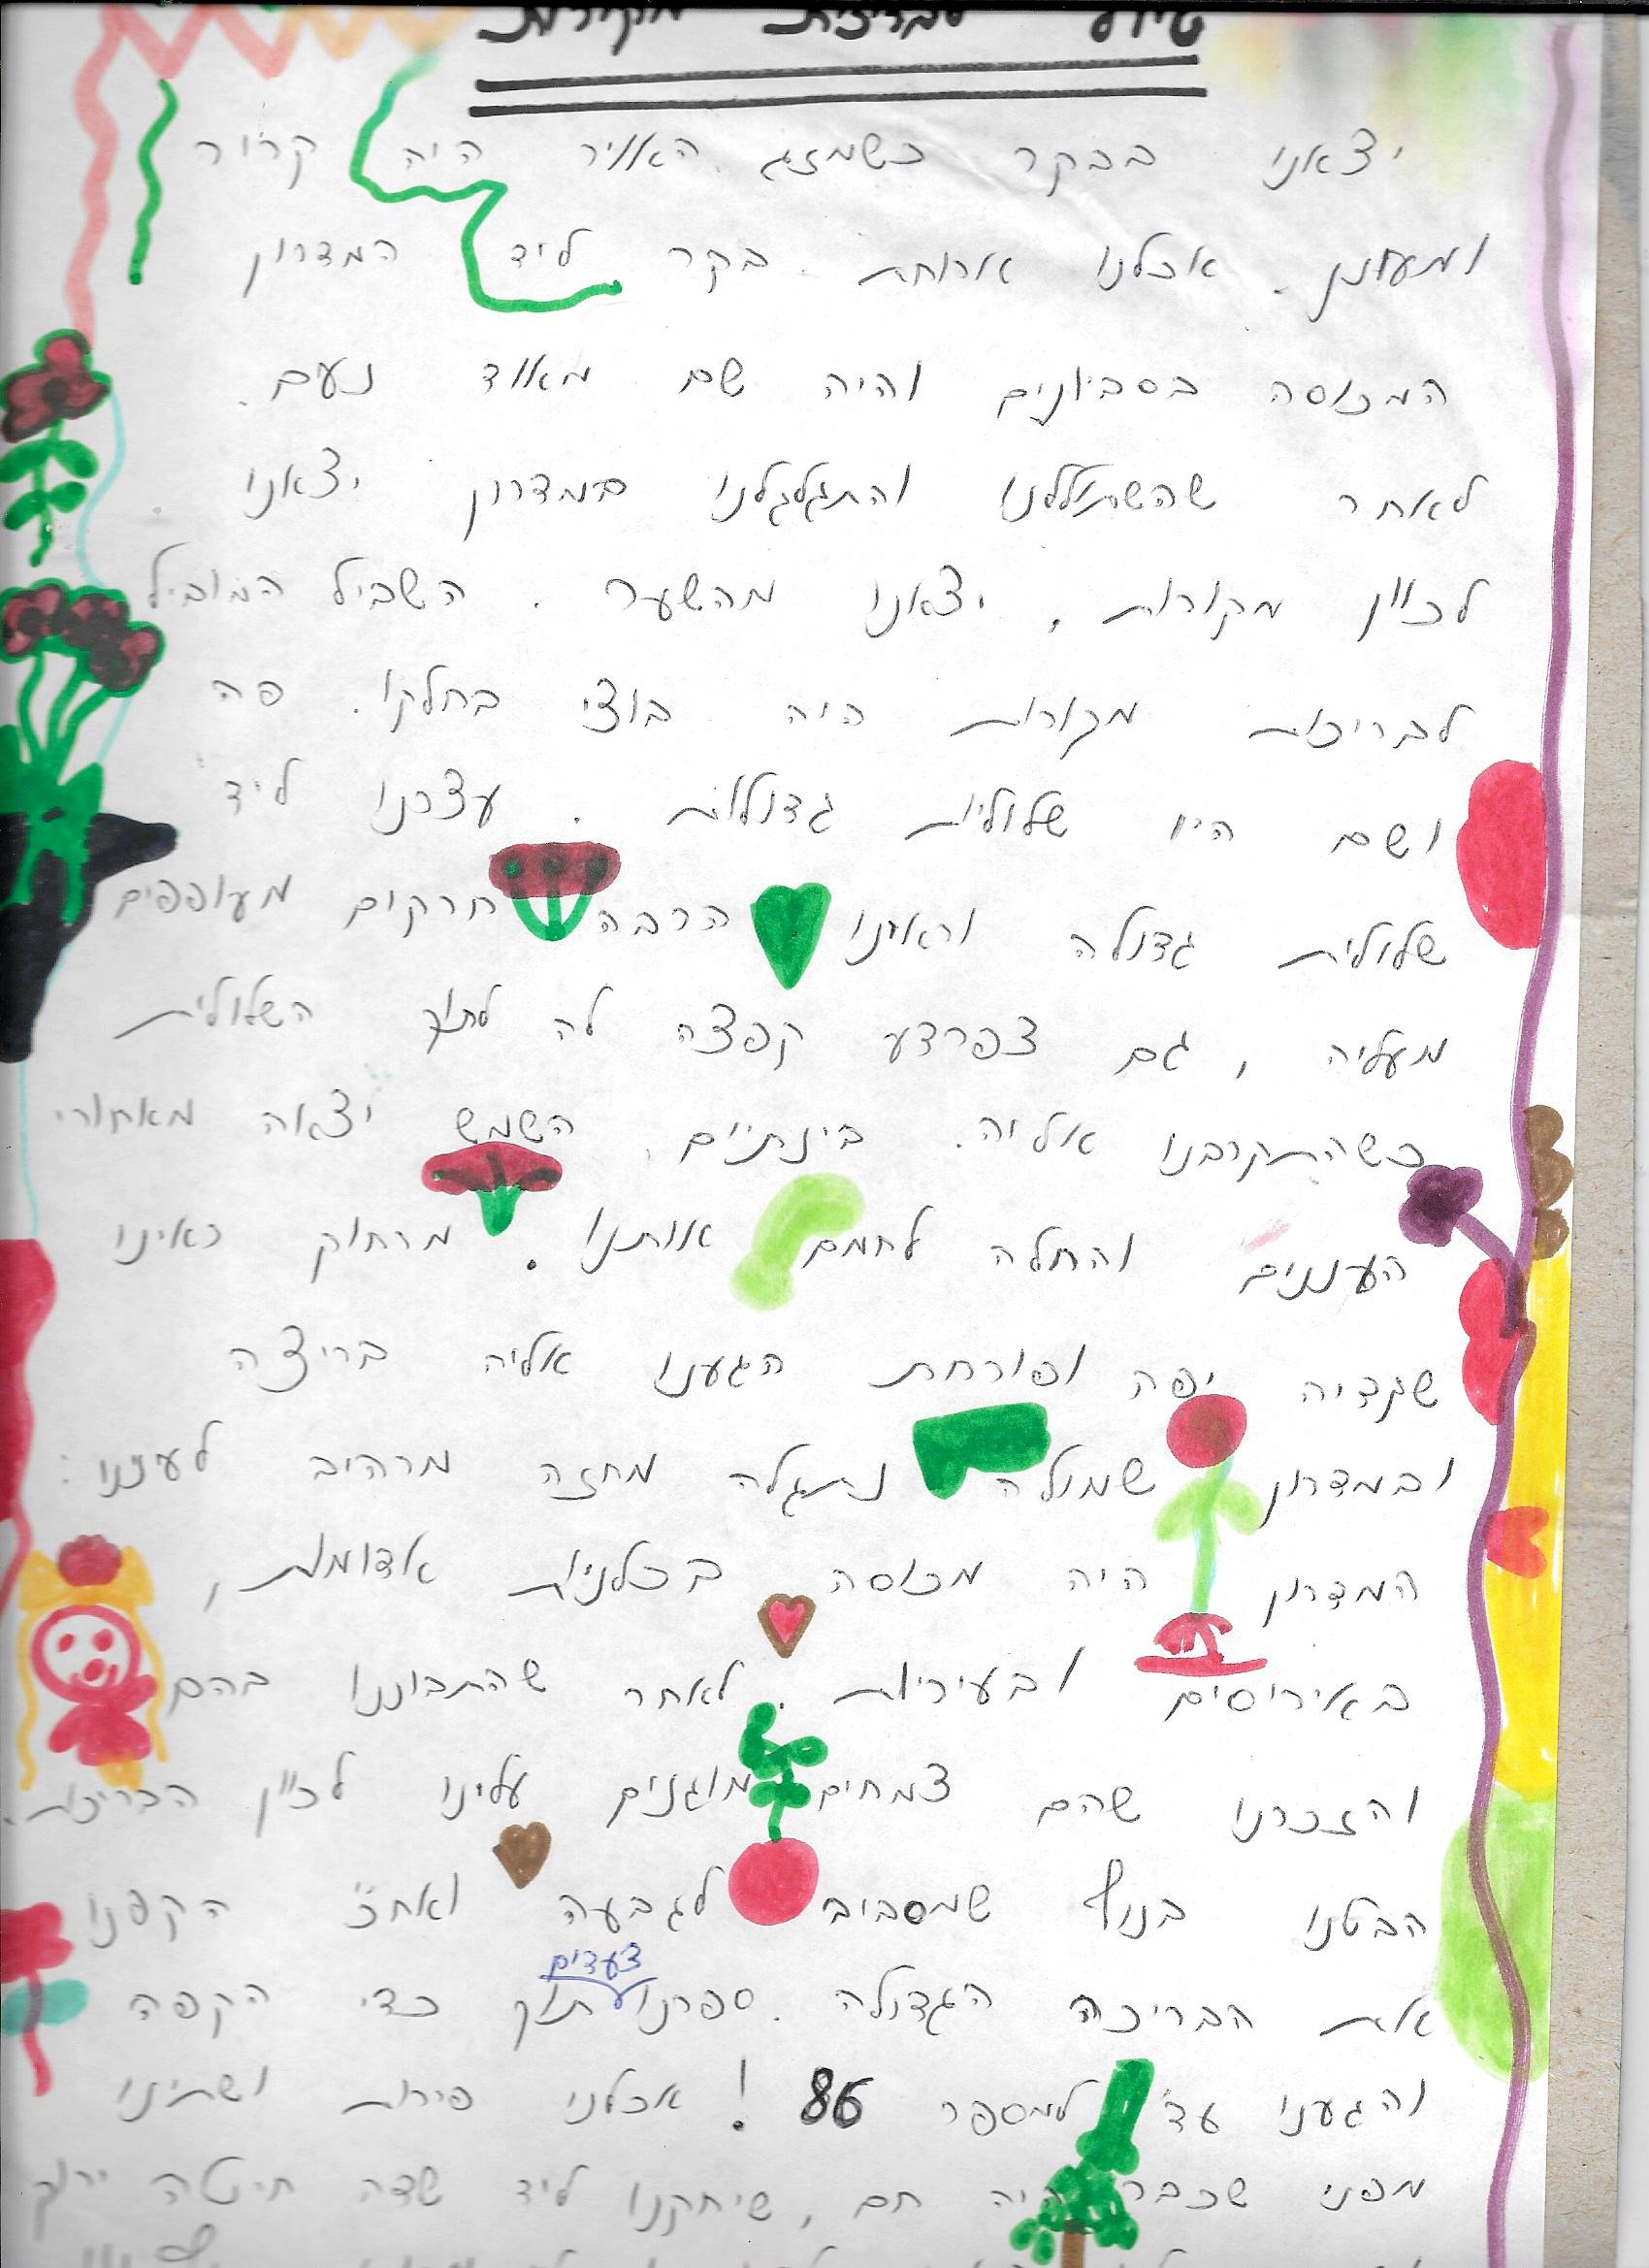 טיול לבריכות מקורות
יצאנו בבקר כשמזג האוויר היה קריר
ומעונן. אכלנו ארוחת בקר ליד המדרון
המכוסה בסביונים והיה שם מאוד נעים.
לאחר שהשתוללנו והתגלגלנו במדרון יצאנו
לכיוון מקורות. יצאנו מהשער. השביל המוביל
לבריכות מקורות היה בוצי בחלקו. פה
ושם היו שלוליות גדולות. עצרנו ליד
שלולית גדולה וראינו הרבה חרקים מעופפים
מעליה, גם צפרדע קפצה לה לתוך השלולית
כשהתקרבנו אליה. בינתיים השמש יצאה מאחורי
העננים והחלה לחמם אותנו. מרחוק ראינו
שקדיה יפה ופורחת הגענו אליה בריצה
ובמדרון שמולה נתגלה מחזה מרהיב לעינינו:
המדרון היה מכוסה בכלניות אדומות,
באירוסים ובעיריות. לאחר שהתבוננו בהם
והזכרנו שהם צמחים מוגנים עלינו לכיוון הבריכות.
הבטנו בנוף שמסביב לגבעה ואח"כ הקפנו
את הבריכה הגדולה. ספרנו צעדים תוך כדי הקפה
והגענו עד למספר 86! אכלנו פירות ושתינו
מפני שכבר היה חם, שיחקנו ליד שדה חיטה ירוק